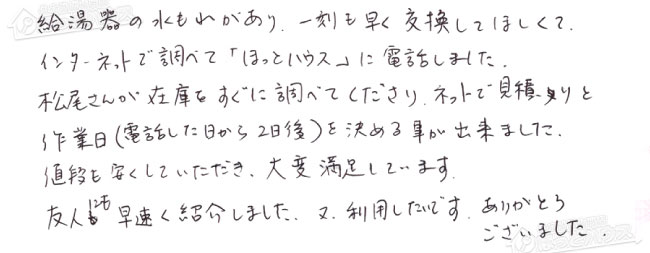 給湯器の水もれがあり、一刻も早く交換してほしくて、
インターネットで調べて「ほっとハウス」に電話しました。
松尾さんが在庫をすぐに調べてくださり、ネットで見積りと
作業日(電話した日から2日後)を決める事が出来ました。
値段も安くしていただき、大変満足しています。
友人にも早速く紹介しました、又、利用したいです。ありがとう
ございました。